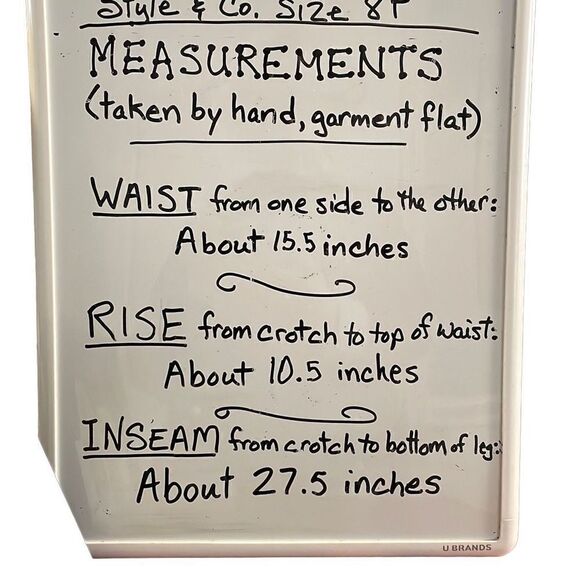 Style & Co. Size 8P
MEASUREMENTS
(taken by hand, garment flat)
WAIST from one side to the other:
About 15.5 inches
RISE from crotch to top of waist:
About 10.5 inches
INSEAM from crotch to bottom of leg:
About 27.5 inches
U BRANDS